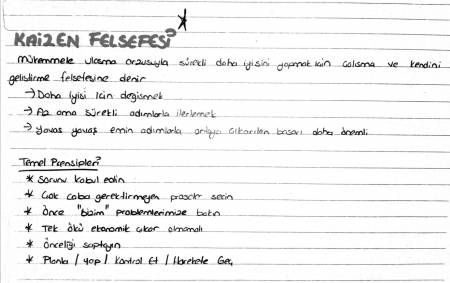 KAİZEN FELSEFESİ
mükemmele ulaşma arzusuyla sürekli daha iyisini yapmak için çalışma ve kendini
geliştirme felsefesine denir
→ Daha iyisi için değişmek
→ Az ama sürekli adımlarla ilerlemek
→ yavaş yavaş emin adımlarla ortaya çıkarılan başarı daha önemli
Temel Prensipleri
* Sorunu kabul edin
* Çok çaba gerektirmeyen projeler seçin
* Önce "bizim" problemlerimize bakın
* Tek ekonomik çıkar olmamalı
* Önceliği saptayın
* Planla / yap / Kontrol Et / Harekete Geç